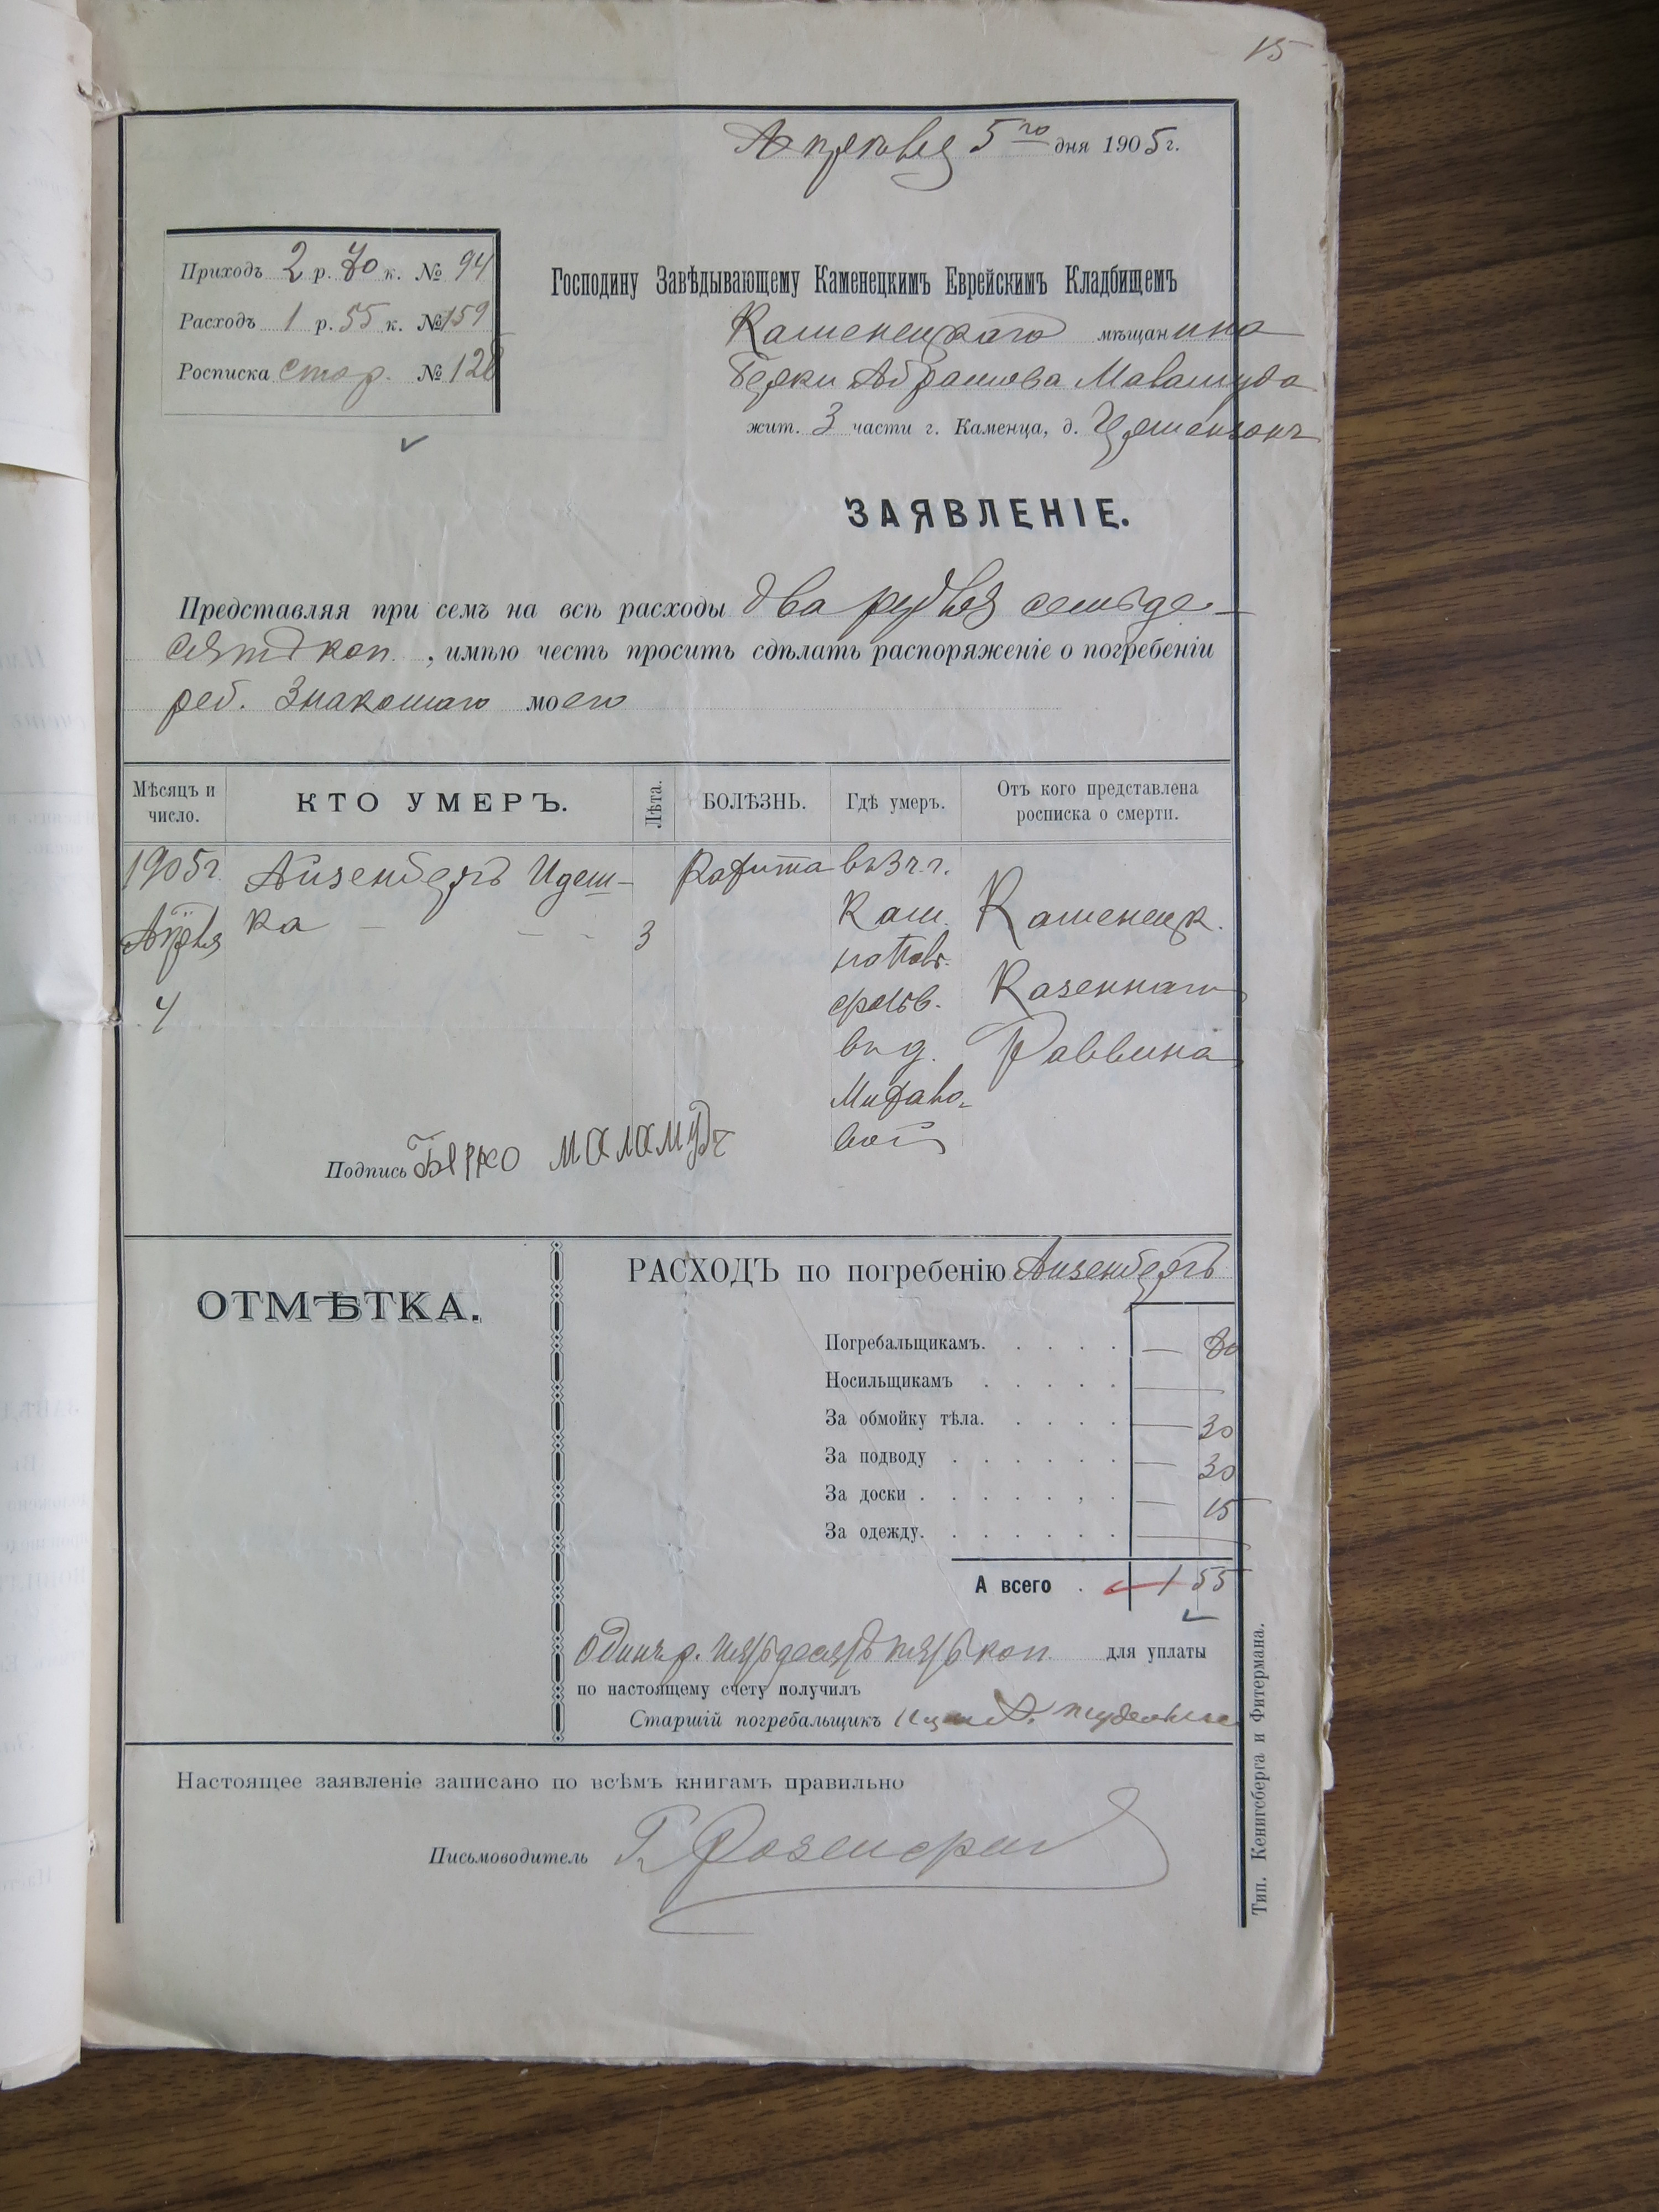 15
Апрѣля 5го дня 1905 г.
Приходъ 2 р. 70 к. № 94
Расходъ 1 р. 55 к. № 159
Росписка стор. № 128
Господину Завѣдывающему Каменецкимъ Еврейскимъ Кладбищемъ
Каменецкаго мѣщанина
Берки Абрамова Маламуда
жит. 3 части г. Каменца, д.
ЗАЯВЛЕНІЕ.
Представляя при семъ на всѣ расходы два рубля семьде-
сятъ коп. , имѣю честь просить сдѣлать распоряженіе о погребеніи
реб. знакомаго моего
Мѣсяцъ и число. КТО УМЕРЪ. Лѣта. БОЛѢЗНЬ. Гдѣ умеръ. Отъ кого представлена росписка о смерти.
1905 г. Айзенбергъ Идеш- въ 3 ч. г.
Апрѣля ка 3 Кам. Каменецк.
4 Казеннаго
въ д. Раввина
вой
Подпись Берко Маламудъ
ОТМѢТКА.
РАСХОДЪ по погребенію Айзенбергъ
Погребальщикамъ. — 80
Носильщикамъ —
За обмойку тѣла. — 30
За подводу — 30
За доски — 15
За одежду. —
А всего 1 55
Одинъ р. пятьдесятъ пять коп. для уплаты
по настоящему счету получилъ
Старшій погребальщикъ
Настоящее заявленіе записано по всѣмъ книгамъ правильно
Письмоводитель
Тип. Кенигсберга и Фитермана.